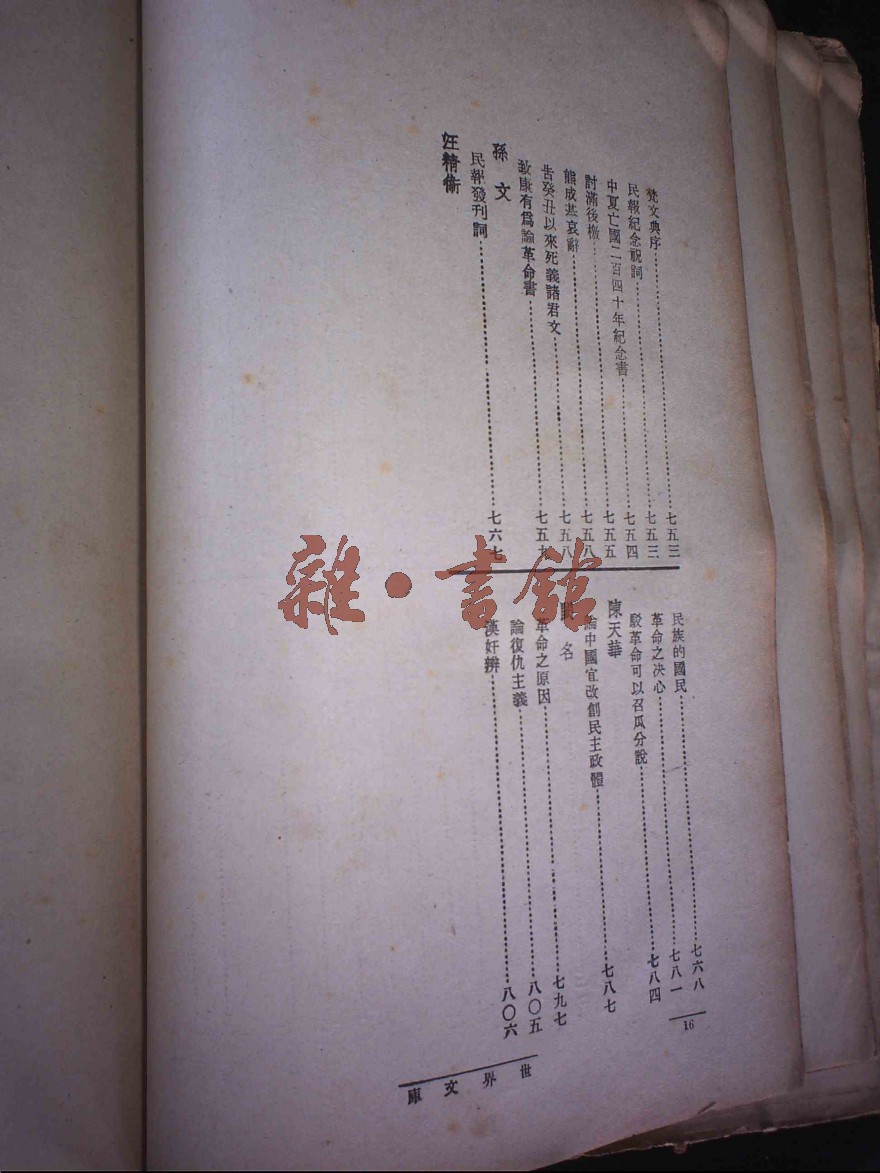 梵文典序……七五三
民報紀念祝詞……七五三
中夏亡國二百四十年紀念書……七五四
討滿後檄……七五五
熊成基哀辭……七五八
告癸丑以來死義諸君文……七五八
致康有爲論革命書……七五九
孫文
民報發刊詞……七六七
汪精衛
民族的國民……七六八
革命之決心……七八一
駁革命可以召瓜分說……七八四
陳天華
論中國宜改創民主政體……七八七
名
革命之原因……七九七
論復仇主義……八〇五
漢奸辨……八〇六
16
世界文庫
雜·書館